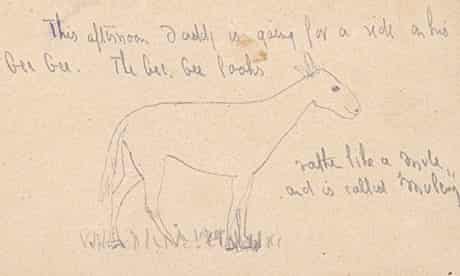 This afternoon Daddy is going for a ride on his
Gee Gee. The Gee. Gee looks
rather like a mule,
and is called "Muldoon